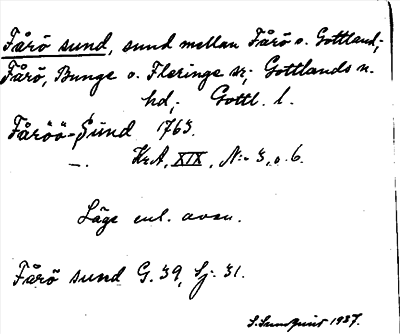 Fårö sund, sund mellan Fårö o. Gottland;
Fårö, Bunge o. Fleringe sr; Gottlands n.
hd; Gottl. l.
Fåröö-Sund 1763.
—. KrA, XIX, N:o 3, o. 6.
Läge enl. avsn.
Fårö sund G. 39, Sj. 31.
S. Sundqvist 1937.